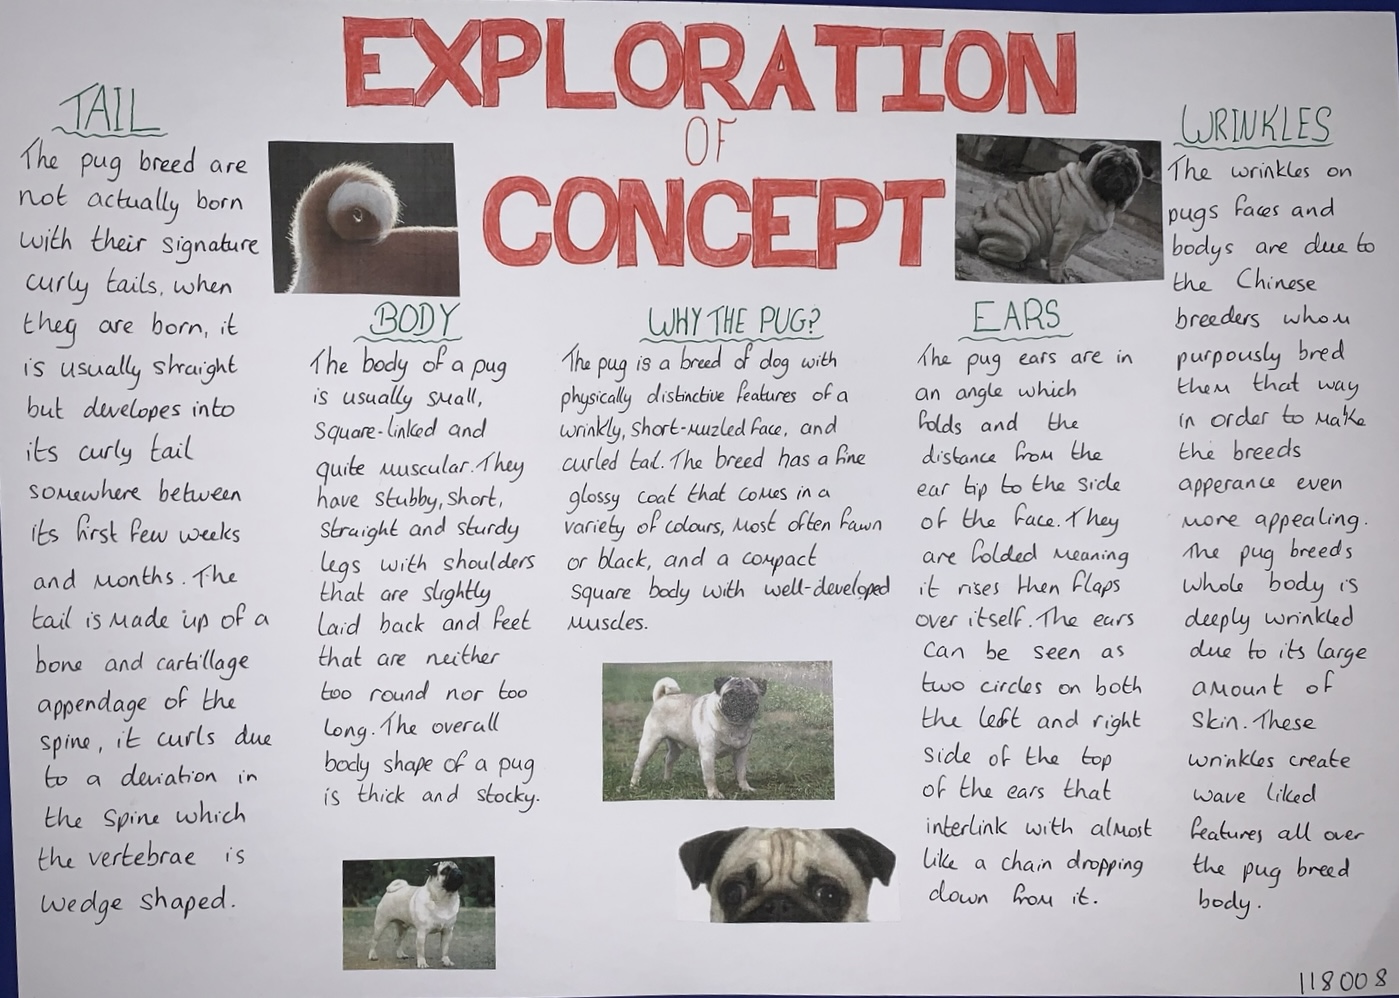 EXPLORATION
OF
CONCEPT
TAIL
The pug breed are
not actually born
with their signature
curly tails, when
they are born, it
is usually straight
but developes into
its curly tail
somewhere between
its first few weeks
and months. The
tail is made up of a
bone and cartillage
appendage of the
spine, it curls due
to a deviation in
the spine which
the vertebrae is
wedge shaped.
BODY
The body of a pug
is usually small,
square-linked and
quite muscular. They
have stubby, short,
straight and sturdy
legs with shoulders
that are slightly
laid back and feet
that are neither
too round nor too
long. The overall
body shape of a pug
is thick and stocky.
WHY THE PUG?
The pug is a breed of dog with
physically distinctive features of a
wrinkly, short-muzled face, and
curled tail. The breed has a fine
glossy coat that comes in a
variety of colours, most often fawn
or black, and a compact
square body with well-developed
muscles.
EARS
The pug ears are in
an angle which
folds and the
distance from the
ear tip to the side
of the face. They
are folded meaning
it rises then flaps
over itself. The ears
can be seen as
two circles on both
the left and right
side of the top
of the ears that
interlink with almost
like a chain dropping
down from it.
WRINKLES
The wrinkles on
pugs faces and
bodys are due to
the Chinese
breeders whom
purpously bred
them that way
in order to make
the breeds
apperance even
more appealing.
The pug breeds
whole body is
deeply wrinkled
due to its large
amount of
skin. These
wrinkles create
wave liked
features all over
the pug breed
body.
118008